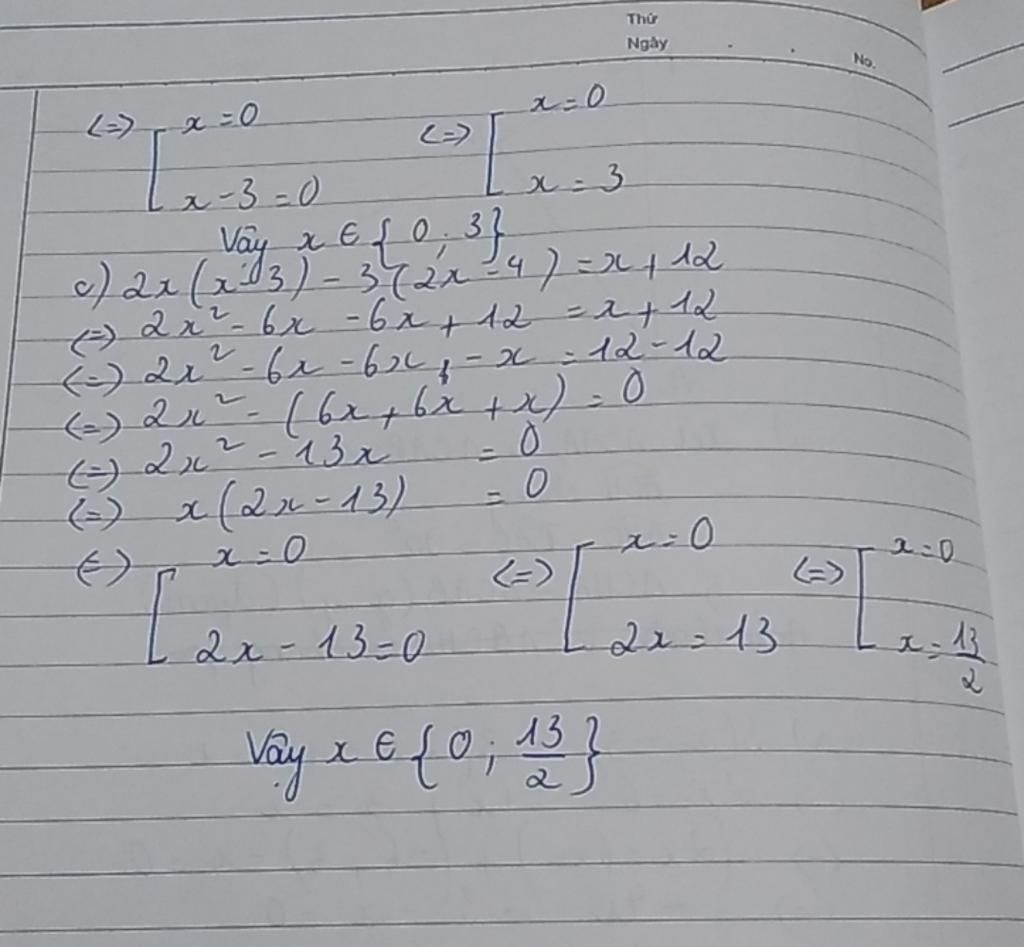 Thứ
Ngày . .
No.
<=> [ x = 0 <=> [ x = 0
x - 3 = 0 x = 3
Vậy x ∈ { 0 ; 3 }
c) 2x(x - 3) - 3(2x - 4) = x + 12
<=> 2x² - 6x - 6x + 12 = x + 12
<=> 2x² - 6x - 6x - x = 12 - 12
<=> 2x² - (6x + 6x + x) = 0
<=> 2x² - 13x = 0
<=> x(2x - 13) = 0
<=> [ x = 0 <=> [ x = 0 <=> [ x = 0
2x - 13 = 0 2x = 13 x = 13/2
Vậy x ∈ { 0 ; 13/2 }